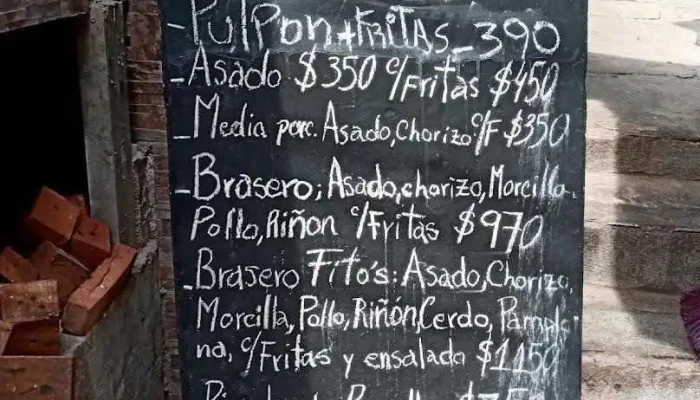 - Pulpon + FRITAS - 390
- Asado $350 c/Fritas $450
- Media porc. Asado, Chorizo c/F $350
- Brasero; Asado, chorizo, Morcilla.
Pollo, Riñon c/Fritas $970
- Brasero Fito's: Asado, Chorizo,
Morcilla, Pollo, Riñón, Cerdo, Pamplo-
na, c/Fritas y ensalada $1150